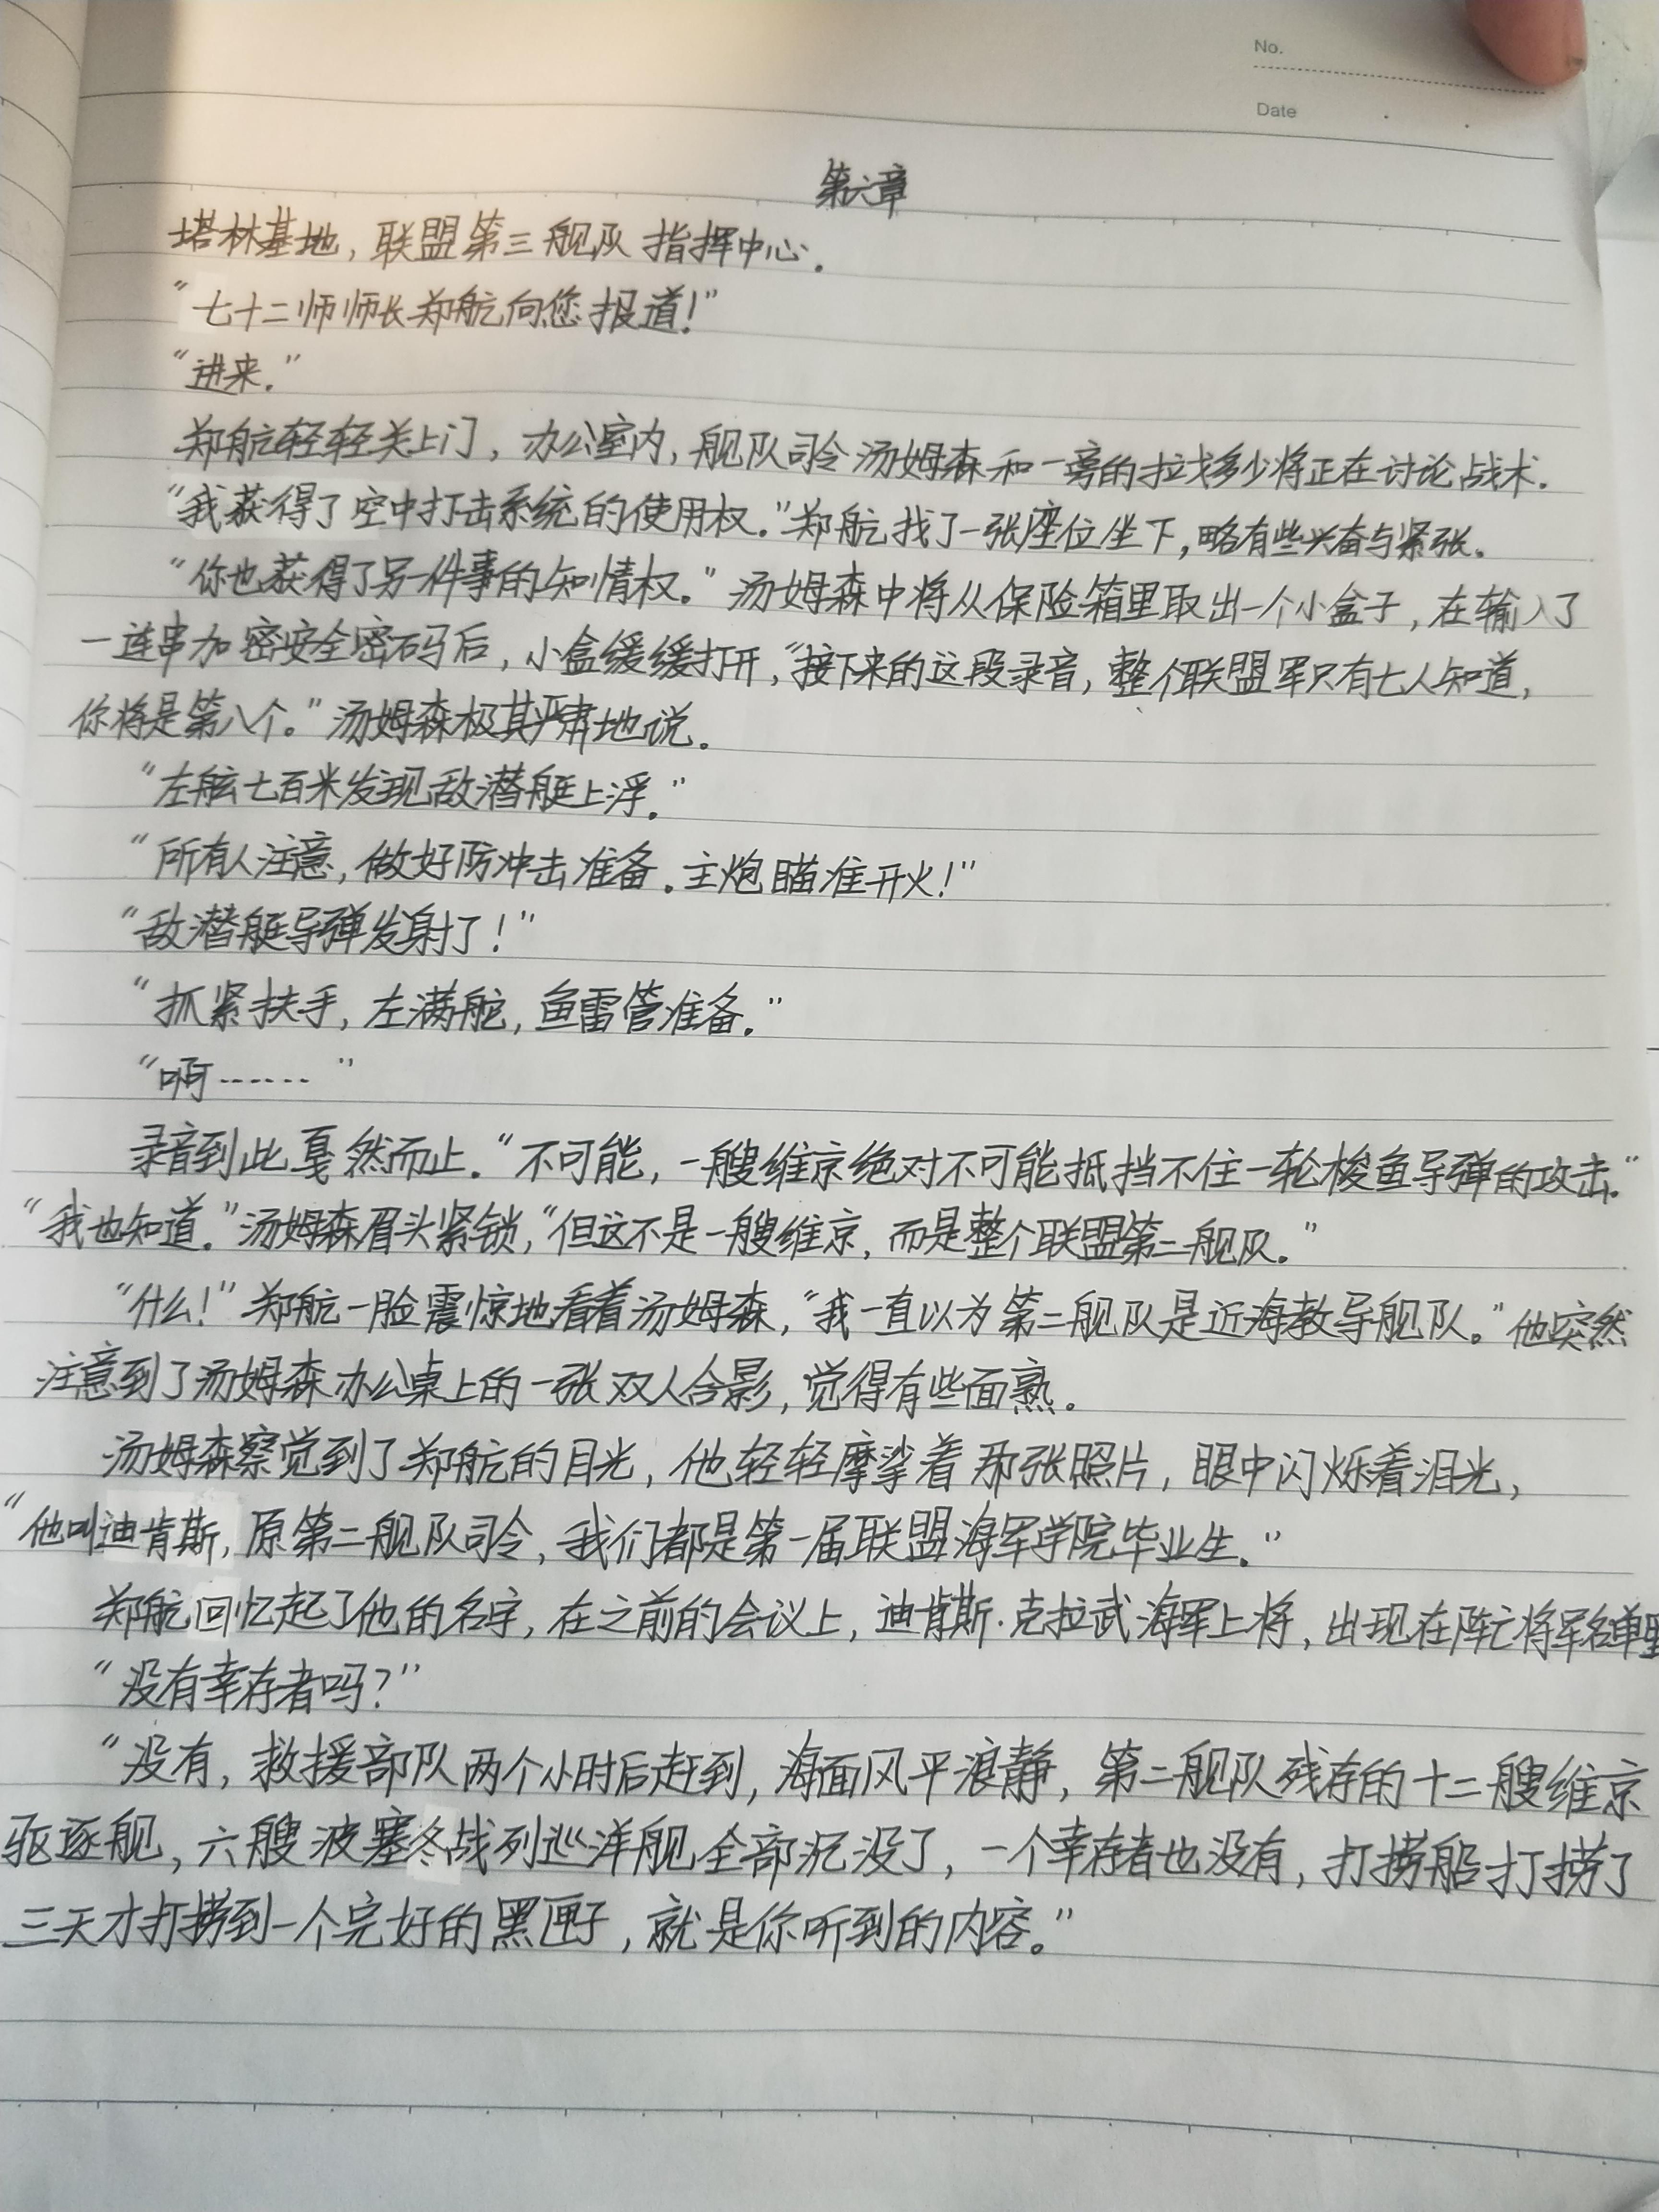 No.
Date
第六章
塔林基地，联盟第三舰队指挥中心.
“七十二师师长郑航向您报道！”
“进来.”
郑航轻轻关上门，办公室内，舰队司令汤姆森和一旁的拉戈多少将正在讨论战术.
“我获得了空中打击系统的使用权.”郑航找了一张座位坐下，略有些兴奋与紧张.
“你也获得了另一件事的知情权.”汤姆森中将从保险箱里取出一个小盒子，在输入了
一连串加密安全密码后，小盒缓缓打开，“接下来的这段录音，整个联盟军只有七人知道，
你将是第八个.”汤姆森极其严肃地说.
“左舷七百米发现敌潜艇上浮.”
“所有人注意，做好防冲击准备.主炮瞄准开火！”
“敌潜艇导弹发射了！”
“抓紧扶手，左满舵，鱼雷管准备.”
“啊……”
录音到此戛然而止.“不可能，一艘维京绝对不可能抵挡不住一轮梭鱼导弹的攻击.”
“我也知道.”汤姆森眉头紧锁，“但这不是一艘维京，而是整个联盟第二舰队.”
“什么！”郑航一脸震惊地看着汤姆森，“我一直以为第二舰队是近海教导舰队。”他突然
注意到了汤姆森办公桌上的一张双人合影，觉得有些面熟。
汤姆森察觉到了郑航的目光，他轻轻摩挲着那张照片，眼中闪烁着泪光，
“他叫迪肯斯，原第二舰队司令，我们都是第一届联盟海军学院毕业生.”
郑航回忆起了他的名字，在之前的会议上，迪肯斯·克拉武海军上将，出现在阵亡将军名单里
“没有幸存者吗？”
“没有，救援部队两个小时后赶到，海面风平浪静，第二舰队残存的十二艘维京
驱逐舰，六艘波塞冬战列巡洋舰全部沉没了，一个幸存者也没有，打捞船打捞了
三天才打捞到一个完好的黑匣子，就是你听到的内容。”